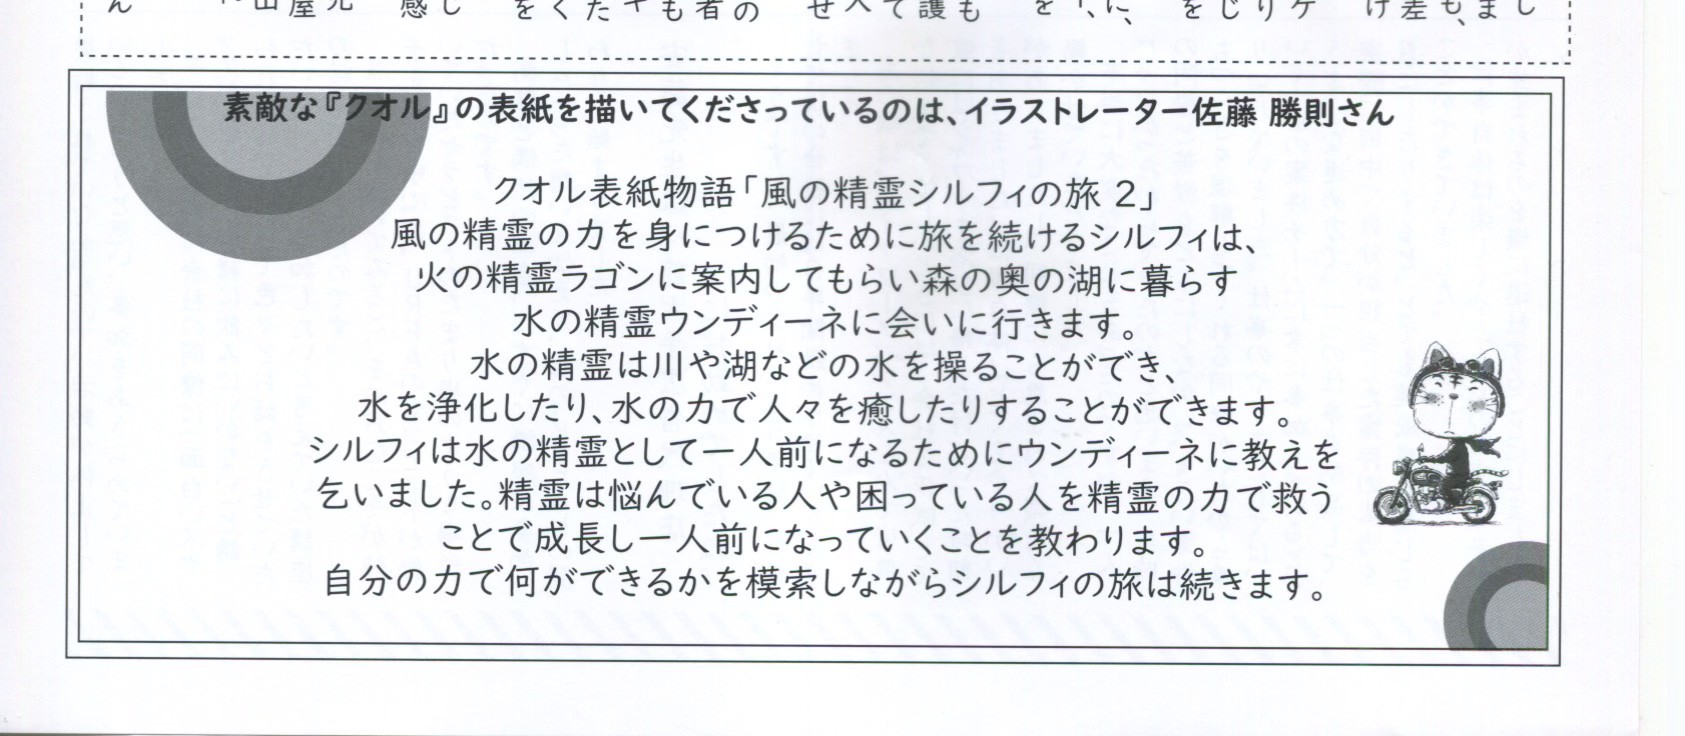 素敵な『クオル』の表紙を描いてくださっているのは、イラストレーター佐藤 勝則さん
クオル表紙物語「風の精霊シルフィの旅 2」
風の精霊の力を身につけるために旅を続けるシルフィは、
火の精霊ラゴンに案内してもらい森の奥の湖に暮らす
水の精霊ウンディーネに会いに行きます。
水の精霊は川や湖などの水を操ることができ、
水を浄化したり、水の力で人々を癒したりすることができます。
シルフィは水の精霊として一人前になるためにウンディーネに教えを
乞いました。精霊は悩んでいる人や困っている人を精霊の力で救う
ことで成長し一人前になっていくことを教わります。
自分の力で何ができるかを模索しながらシルフィの旅は続きます。